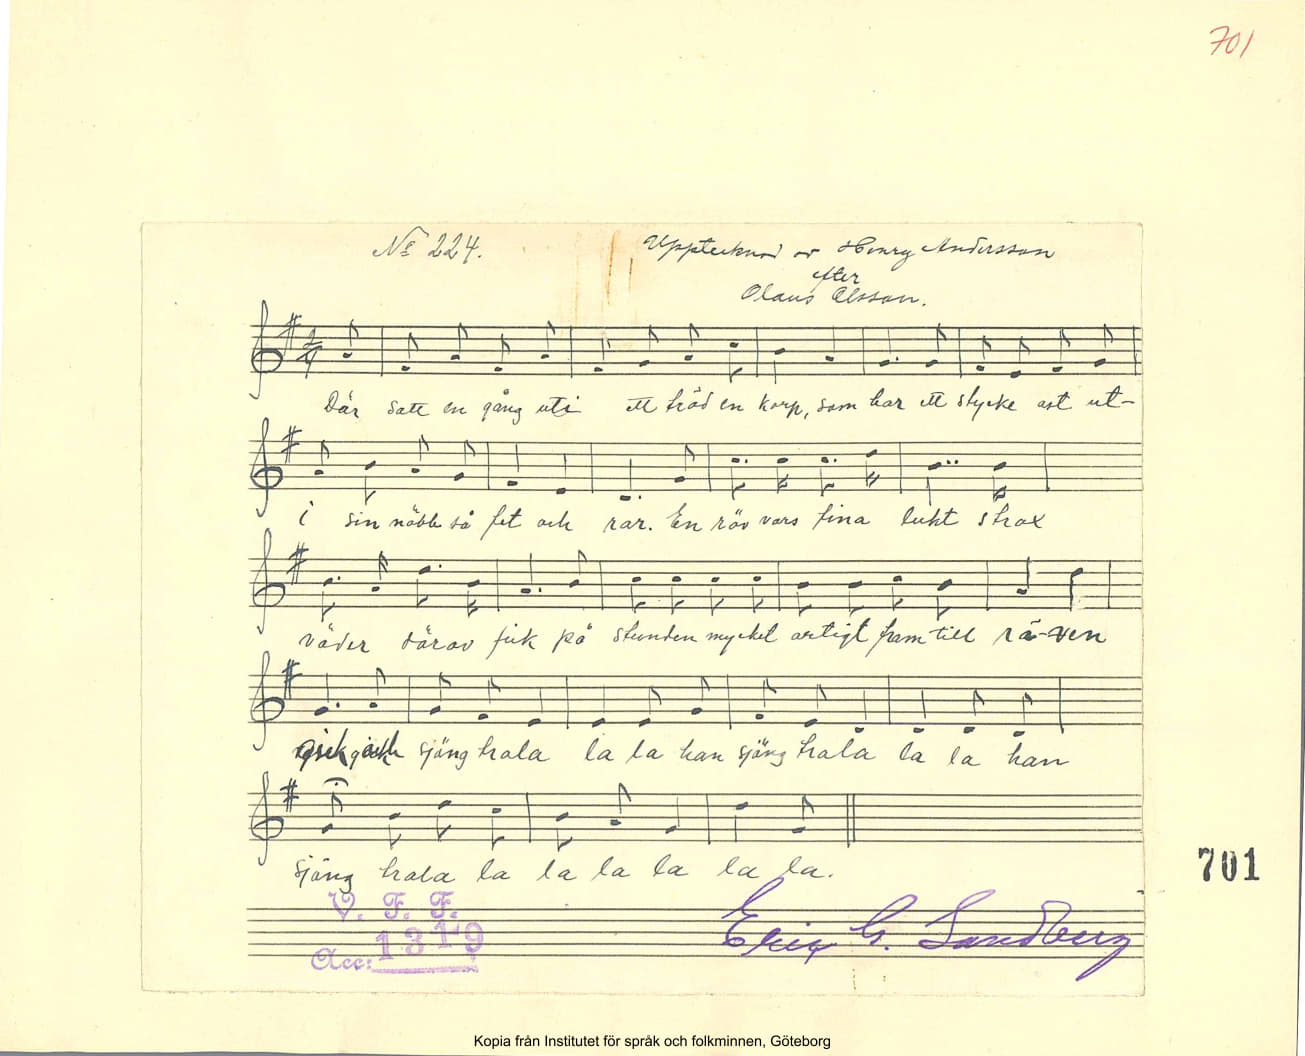 701
No 224.
Upptecknad av Henry Andersson
efter
Olaus Olsson.
2/4
Där satt en gång uti ett träd en korp, som har ett stycke ost ut-
i sin näbb så fet och rar. En räv vars fina lukt strax
väder därav fick på stunden mycket artigt fram till rä-ven
gick och sjöng trala la la han sjöng trala la la han
sjöng trala la la la la la la.
701
V. F. F.
Acc: 1319
Eric G. Sandberg
Kopia från Institutet för språk och folkminnen, Göteborg